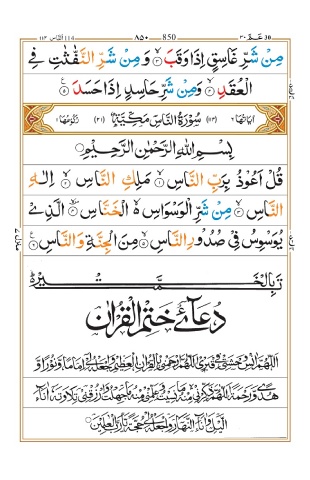 ١١٤ النَّاس 114 ٨٥٠ 850 عَمَّ ٣٠ 30
مِنْ شَرِّ غَاسِقٍ اِذَا وَقَبَ ۙ﴿۳﴾ وَ مِنْ شَرِّ النَّفّٰثٰتِ فِی
الْعُقَدِ ۙ﴿۴﴾ وَمِنْ شَرِّ حَاسِدٍ اِذَا حَسَدَ ﴿۵﴾
اٰیَاتُهَا ٦ (١١٤) سُوْرَةُ النَّاسِ مَكِّیَّةٌ (٢١) رُكُوْعُهَا ١
بِسْمِ اللّٰهِ الرَّحْمٰنِ الرَّحِیْمِ
قُلْ اَعُوْذُ بِرَبِّ النَّاسِ ۙ﴿۱﴾ مَلِكِ النَّاسِ ۙ﴿۲﴾ اِلٰهِ
النَّاسِ ۙ﴿۳﴾ مِنْ شَرِّ الْوَسْوَاسِ ۙ۬ الْخَنَّاسِ ۪ۙ﴿۴﴾ الَّذِیْ
یُوَسْوِسُ فِیْ صُدُوْرِ النَّاسِ ۙ﴿۵﴾ مِنَ الْجِنَّةِ وَ النَّاسِ ﴿۶﴾
دُعَآئے خَتْمُ الْقُرْاٰن
اَللّٰهُمَّ اٰنِسْ وَحْشَتِیْ فِیْ قَبْرِیْ اَللّٰهُمَّ ارْحَمْنِیْ بِالْقُرْاٰنِ الْعَظِیْمِ وَاجْعَلْهُ لِیْ اِمَامًا وَّنُوْرًا وَّ
هُدًی وَّرَحْمَةً اَللّٰهُمَّ ذَكِّرْنِیْ مِنْهُ مَا نَسِیْتُ وَعَلِّمْنِیْ مِنْهُ مَا جَهِلْتُ وَارْزُقْنِیْ تِلَاوَتَهٗ اٰنَآءَ
الَّیْلِ وَاٰنَآءَ النَّهَارِ وَاجْعَلْهُ لِیْ حُجَّةً یَّا رَبَّ الْعٰلَمِیْنَ